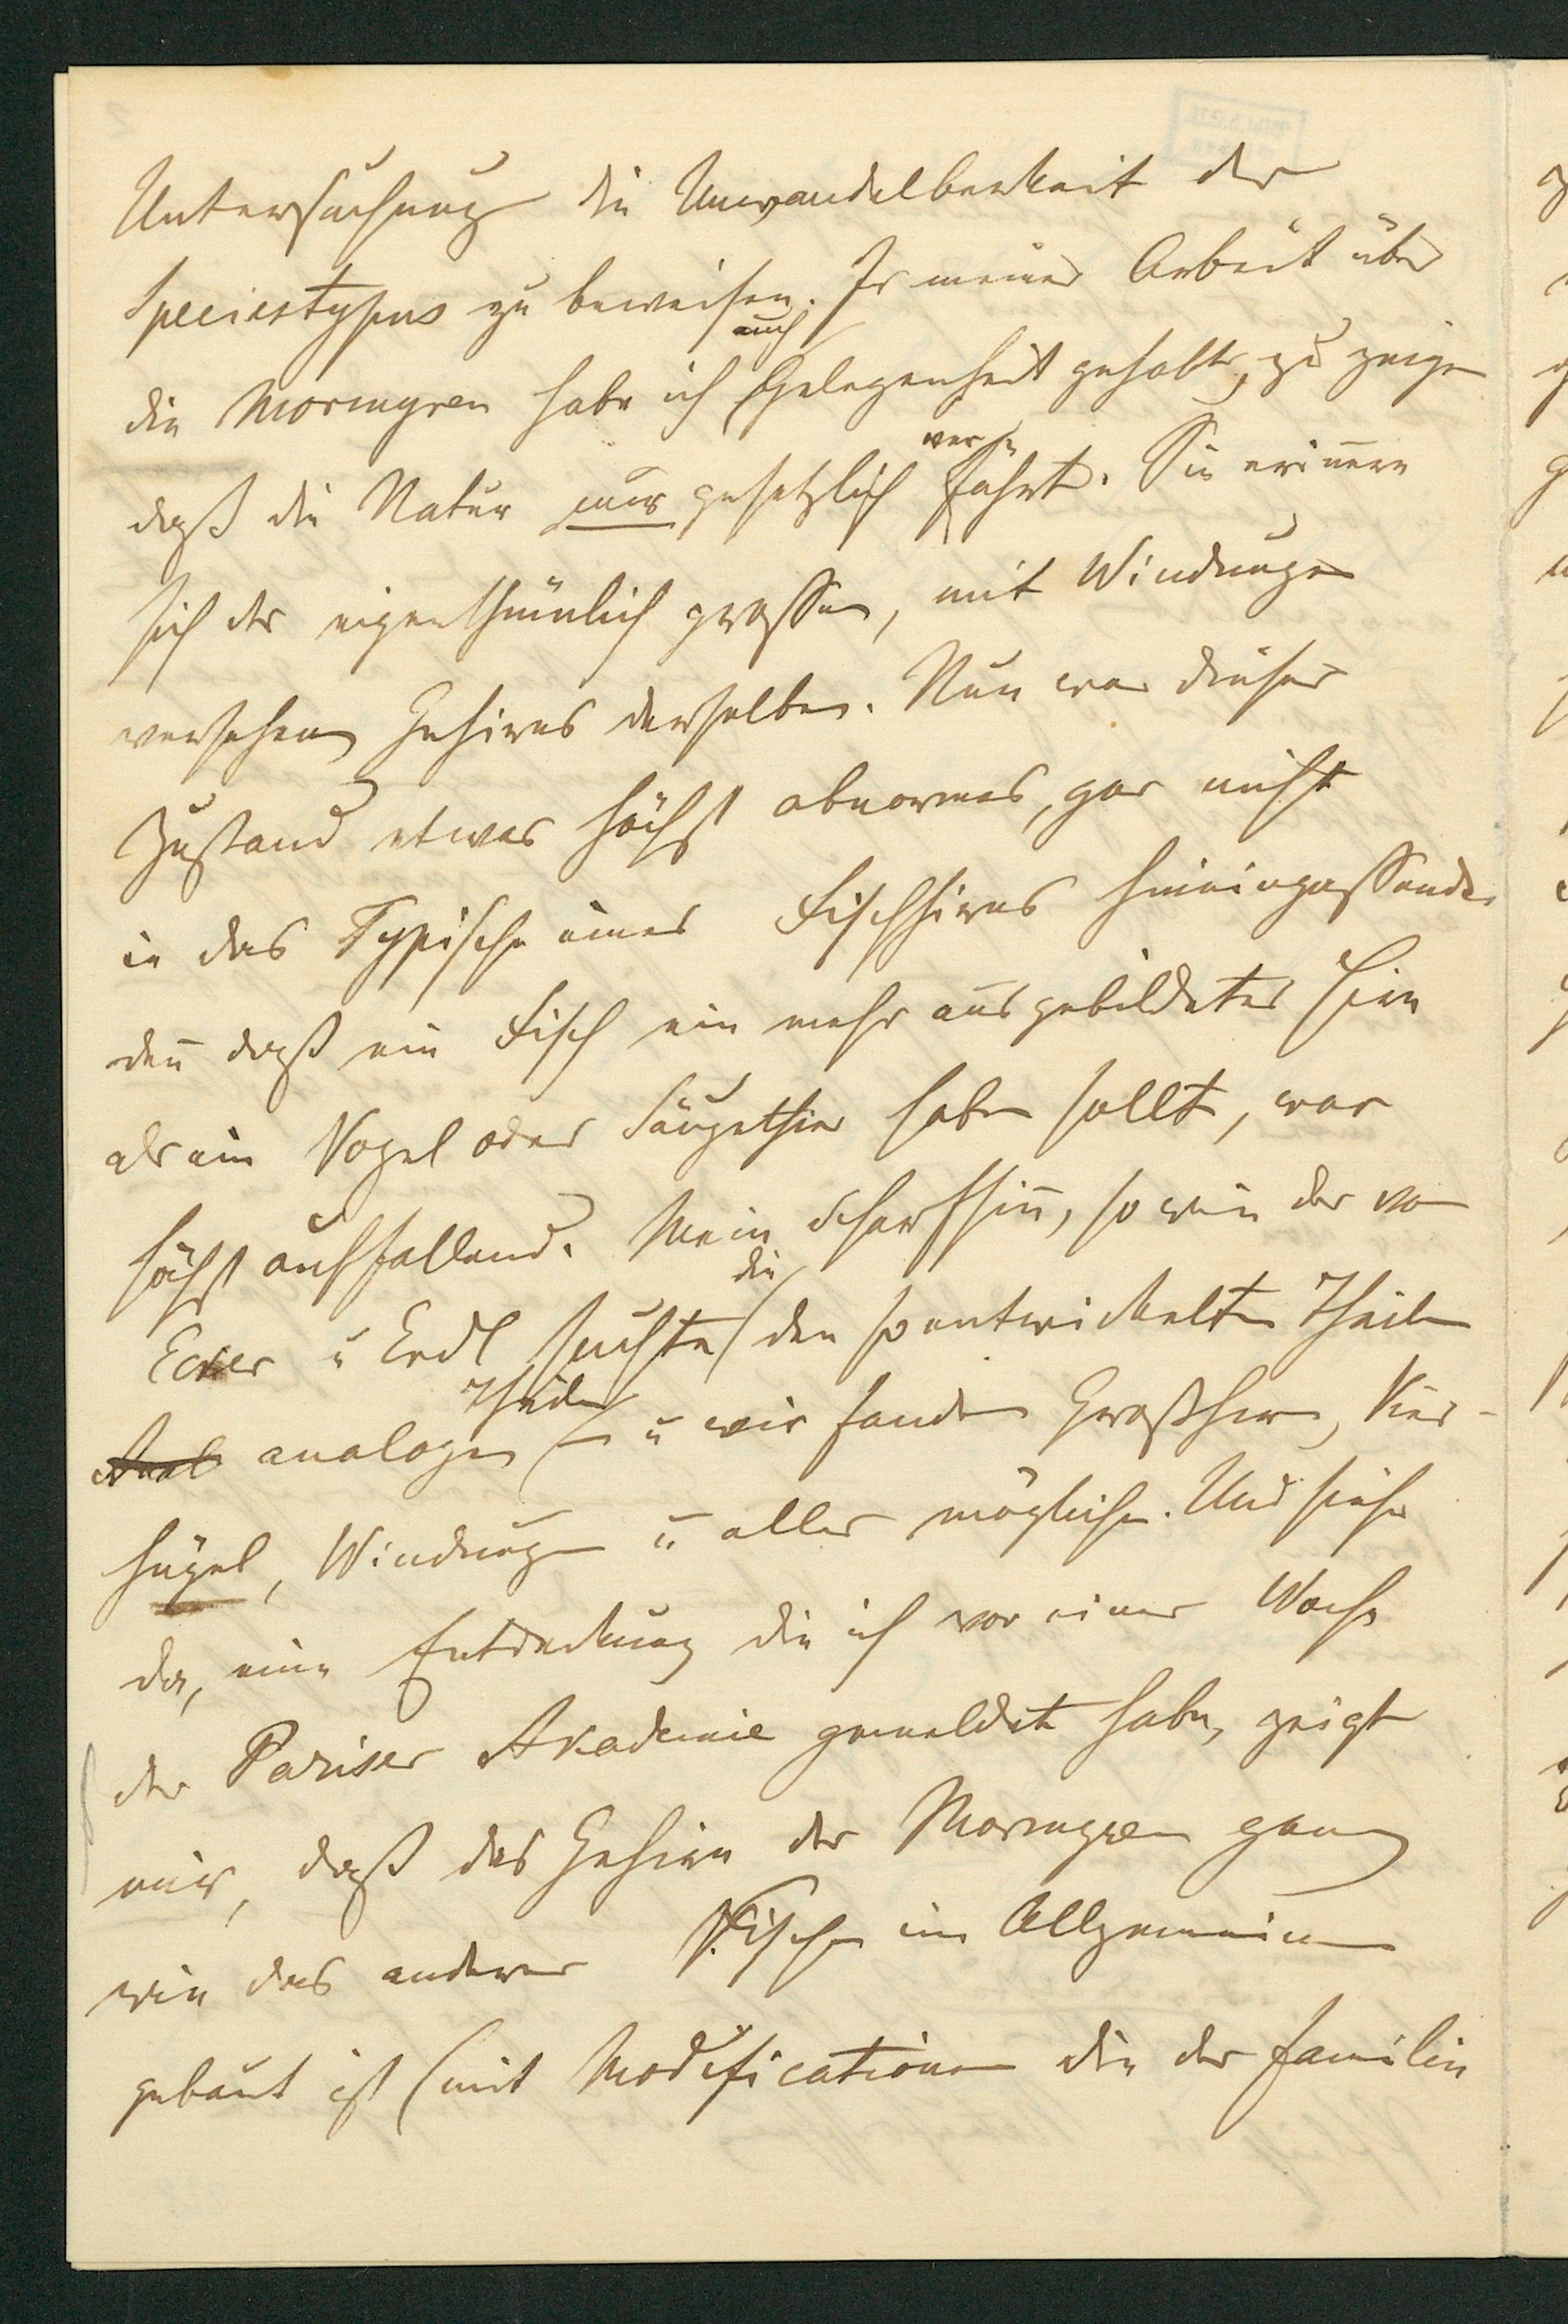 Untersuchung die Unwandelbarkeit der
Speciestypus zu beweisen. In meiner Arbeit über
die Mormyren habe ich auch Gelegenheit gehabt, zu zeigen
daß die Natur nur gesetzlich verfährt. Sie erinnern
sich des eigenthümlich grossen, mit Windungen
versehenen Gehirns derselben. Nun war dieser
Zustand etwas höchst abnormes, gar nicht
in das Typische eines Fischhirns hineinpassendes
den̄ daß ein Fisch ein mehr ausgebildetes Hirn
als ein Vogel oder Säugethier haben sollte, war
höchst auffallend. Mein Scharfsin̄, so wie der von
Ecker u Erdl suchte die den so entwickelten Theilen
Anal analogen Theile – u wir fanden Großhirn, Vier-
hügel, Windungen u alles mögliche. Und siehe
da, eine Entdeckung die ich vor einer Woche
der Pariser Akademie gemeldet habe, zeigt
mir, daß das Gehirn der Mormyren ganz
wie das anderer Fische im Allgemeinen
gebaut ist (mit Modificationen die der Familie